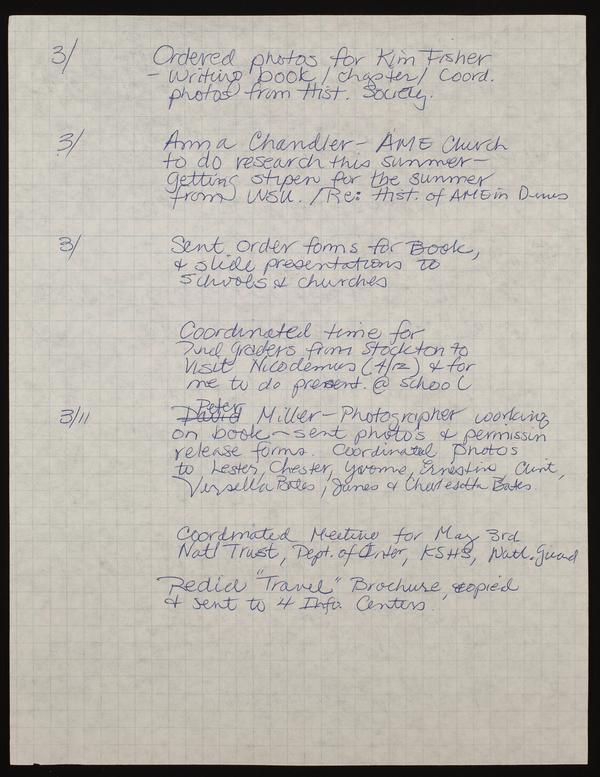 3/ Ordered photos for Kim Fisher
- Writing book / chapter / Coord.
photos from Hist. Society.
3/ Anna Chandler - AME Church
to do research this summer -
getting stipen for the summer
from WSU. / Re: Hist. of AME in
3/ Sent order forms for Book,
& slide presentations to
Schools & churches
Coordinated time for
2nd graders from Stockton to
Visit Nicodemus (4/12) & for
me to do present. @ School
Peter
3/11 David Miller - Photographer working
on book - sent photo's & permissin
release forms. Coordinated Photos
to Lester, Chester, Yvonne, Ernestine, Clint,
Versella Bates, James & Bates.
Coordinated Meeting for May 3rd
Natl Trust, Dept. of Inter, KSHS, Natl. Guard
Redid "Travel" Brochure, copied
& sent to 4 Info. Centers